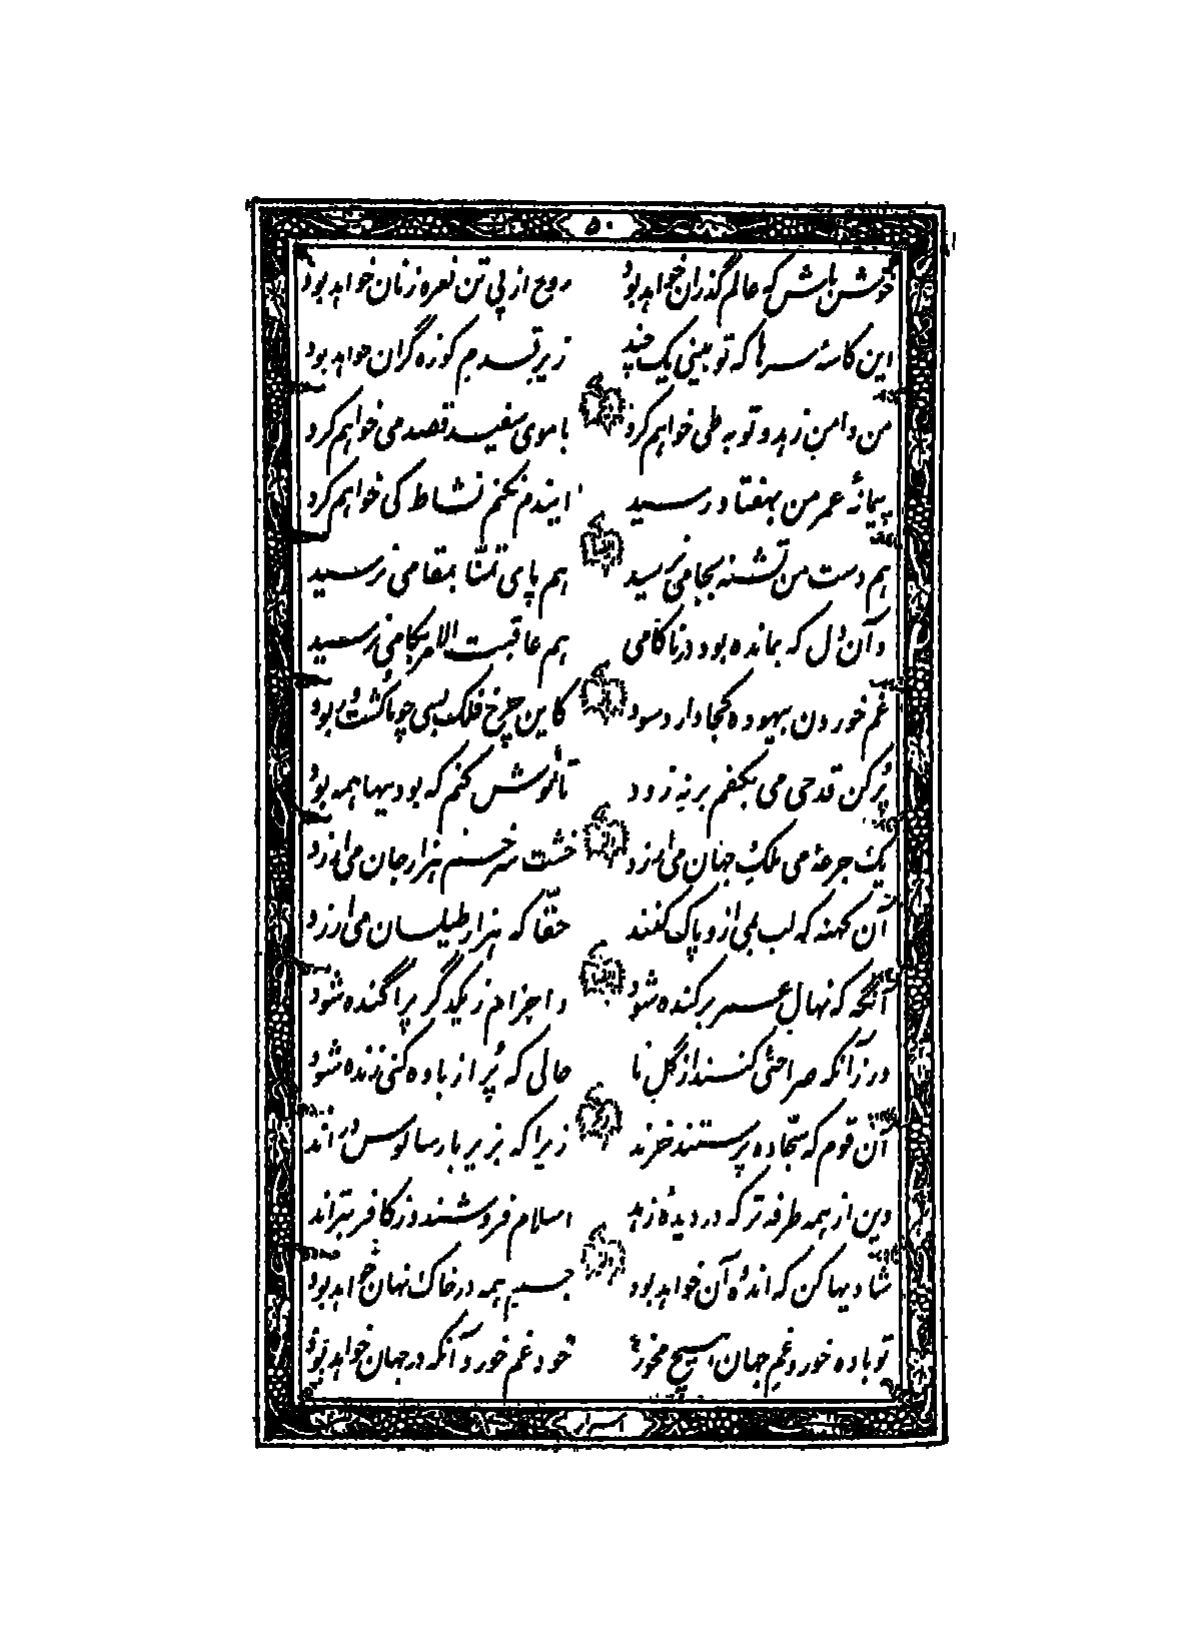 ۵۰
خوش باش که عالم گذران خواهد بود روح از پی تن نعره زنان خواهد بود
این کاسهٔ سرها که تو بینی یک چند زیر قدم کوزه گران خواهد بود
من دامن زهد و توبه طی خواهم کرد با موی سفید قصد می خواهم کرد
پیمانهٔ عمر من بهفتاد رسید ایندم نکنم نشاط کی خواهم کرد
هم دست من تشنه بجامی نرسید هم پای تمنّا بمقامی نرسید
وآن دل که بمانده بود در ناکامی هم عاقبت الامر بکامی نرسید
غم خوردن بیهوده کجا دارد سود کاین چرخ فلک بسی چو ما کشت و درود
پُر کن قدحی می بکفم برنه زود تا نوش کنم که بودنیها همه بود
یک جرعهٔ می ملک جهان می‌ارزد خشت سر خم هزار جان می‌ارزد
آن کهنه که لب بمی ازو پاک کنند حقّا که هزار طیلسان می‌ارزد
آنگه که نهال عمر برکنده شود و اجزام ز یکدگر پراگنده شود
ور زآنکه صراحئی کنند از گل ما حالی که پُر از باده کنی زنده شود
آن قوم که سجّاده پرستند خرند زیرا که بزیر بار سالوس درند
وین از همه طرفه تر که در دیدهٔ زهد اسلام فروشند و ز کافر بترند
شادیها کن که اندُه آن خواهد بود جسم همه در خاک نهان خواهد بود
تو باده خور و غم جهان هیچ مخور خود غم خورد آنکه در جهان خواهد بود